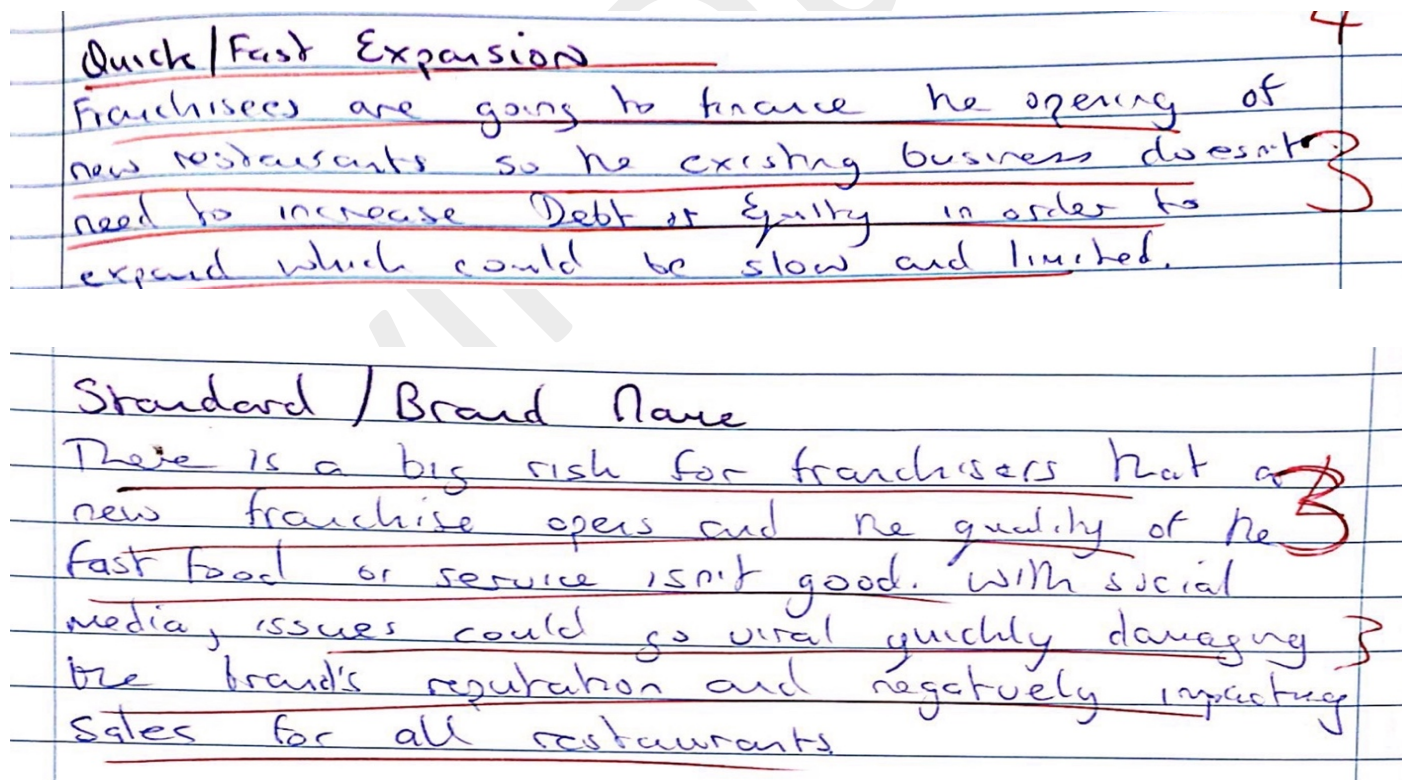 4
Quick/Fast Expansion
Franchisees are going to finance the opening of
new restaurants so the existing business doesn't
3
need to increase Debt or Equity in order to
expand which could be slow and limited.
Standard / Brand Name
There is a big risk for franchisers that a
3
new franchise opens and the quality of the
fast food or service isn't good. With social
media, issues could go viral quickly damaging 3
the brand's reputation and negatively impacting
sales for all restaurants.